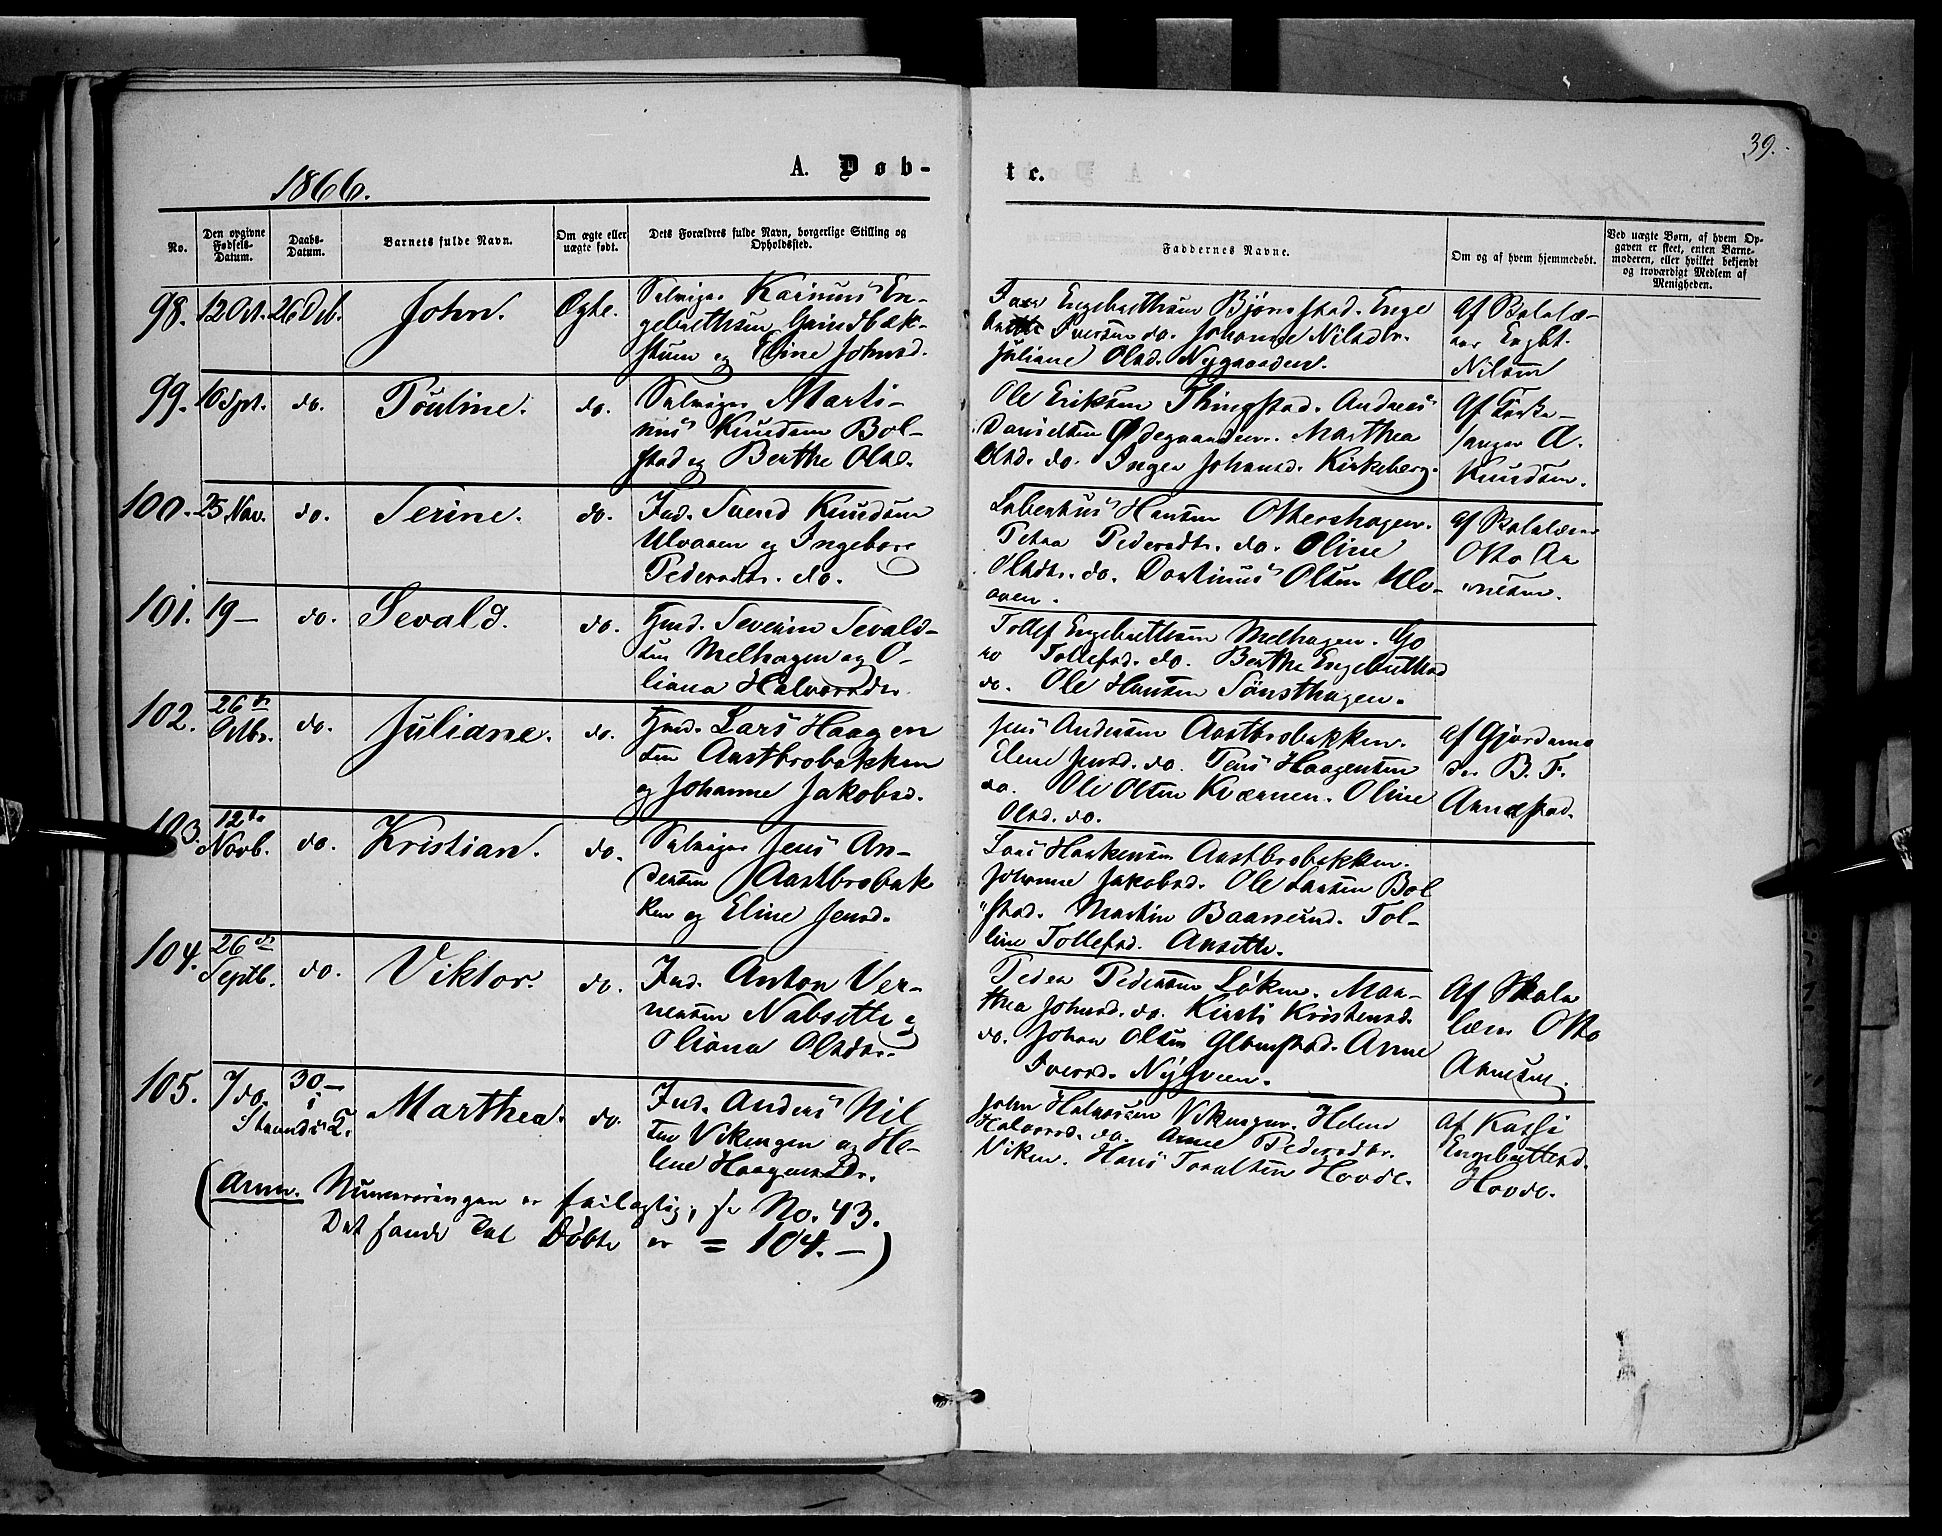 39.
1866.
A. Døb-
te.
No.
Den opgivne Fødsels-Datum.
Daabs-Datum.
Barnets fulde Navn.
Om ægte eller uægte født.
Dets Forældres fulde Navn, borgerlige Stilling og Opholdssted.
Faddernes Navne.
Om og af hvem hjemmedøbt.
Ved uægte Børn, af hvem Opgaven er skeet, enten Barnemoderen, eller hvilket bekjendt og troværdigt Medlem af Menigheden.
98. 12 Oct. 26 Deb. John. Ægte.
Selveier Karinus En-
gebrethsen Grindbak-
stuen og Eline Johnsd.
Iver Engebrethsen Bjørnstad. Enge
Iversen do. Johanne Nilsdtr.
Juliane Olsd. Nygaarden.
Af Skolelæ-
rer Engbt.
Nilsen
99. 10 Spt. do. Pouline. do.
Selveier Marti-
nus Knudsen Bol-
stad og Berthe Olsd.
Ole Eriksen Thingstad. Andreas
Danielsen Ødegaarden. Marthea
Olsd. do. Inger Johansd. Kirkeberg.
Af Kirke-
sanger A.
Knudsen.
100. 25 Nov. do. Serine. do.
Ind. Svend Knudsen
Ulvaaen og Ingeborg
Pedersdtr. do.
Labertus Hansen Ottershagen.
Petra Pedersdtr. do. Oline
Olsdtr. do. Dortinus Olsen Ulv-
aaen.
Af Skolelærer
Otto Ar
nesen.
101. 19 – do. Sevald. do.
Hmd. Severin Sevald-
sen Melhagen og O-
liana Halvorsdtr.
Tollef Engebrethsen Melhagen. Go
ro Tollefsd. do. Berthe Engebrethsd
do. Ole Hansen Sønsthagen.
102. 26de Octbr. do. Juliane. do.
Hmd. Lars Haagen
sen Aastbrobakken
og Johanne Jakobsd.
Jens Andersen Aastbrobakken.
Elene Jensd. do. Jens Haagensen
do. Ole Olsen Kværnen. Oline
Olsd. do.
Af Gjordemo
der B. F.
Arnæstad.
103. 12te Novb. do. Kristian. do.
Selveier Jens An-
dersen Aastbrobak
ken og Eline Jensd.
Lars Haakensen Aastbrobakken.
Johanne Jakobsd. Ole Larsen Bol
stad. Martin Baarsund. Tol-
line Tollefsd. Ansetta.
104. 26de Septb. do. Viktor. do.
Ind. Anton Ver-
nersen Nabsetta og
Oliana Olsdtr.
Peder Pedersen Løken. Mar-
thea Johnsd. do. Kirsti Kristensd.
do. Johan Olsen Glomstad. Anne
Iversd. Nysveen.
Af Skole
lærer Otto
Arnesen.
105. 7 do. 30 – i Strands K. Marthea. do.
Ind. Anders Nil
sen Vikengen og He-
lene Haagensdr.
John Halvorsen Vikengen. Helene
Halvorsd. do. Anne Pedersdtr.
Viken. Hans Toraltsen Hovde.
Af Kathi
Engebrettsd.
Hovde.
(Anm. Numereringen er feilagtig, se No. 43.
Det sande Tal Døbte er = 104. –)